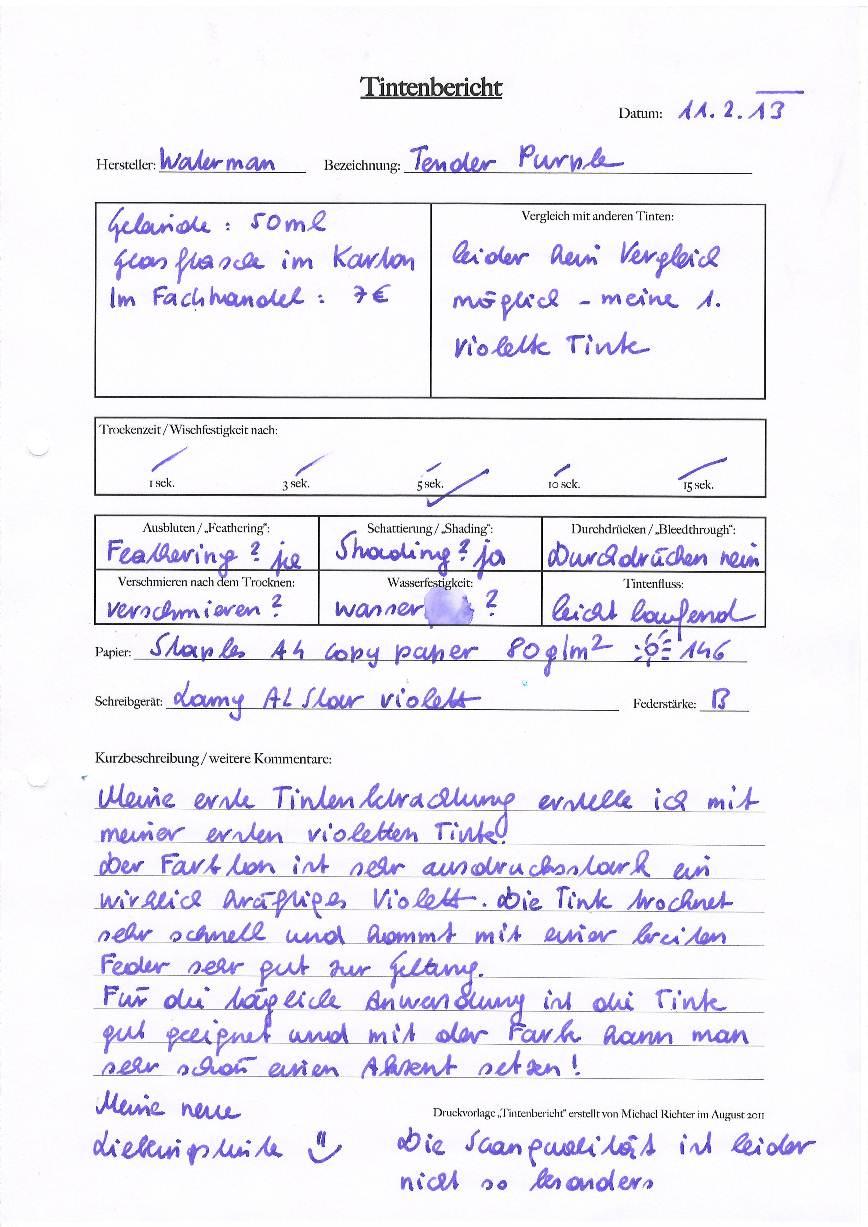 Tintenbericht
Datum: 11.2.13
Hersteller: Waterman Bezeichnung: Tender Purple
Gebinde: 50ml
Glasflasche im Karton
Im Fachhandel: 7€
Vergleich mit anderen Tinten:
leider kein Vergleich
möglich - meine 1.
violette Tinte
Trockenzeit / Wischfestigkeit nach:
1 sek. 3 sek. 5 sek. 10 sek. 15 sek.
Ausbluten / „Feathering": Schattierung / „Shading": Durchdrücken / „Bleedthrough":
Feathering? je Shading? ja Durchdrücken nein
Verschmieren nach dem Trocknen: Wasserfestigkeit: Tintenfluss:
verschmieren? wasser ? leicht laufend
Papier: Staples A4 copy paper 80g/m² 146
Schreibgerät: Lamy AL Star violett Federstärke: B
Kurzbeschreibung / weitere Kommentare:
Meine erste Tintenbetrachtung erstelle ich mit
meiner ersten violetten Tinte!
Der Farbton ist sehr ausdrucksstark ein
wirklich kräftiges Violett. Die Tinte trocknet
sehr schnell und kommt mit einer breiten
Feder sehr gut zur Geltung.
Für die tägliche Anwendung ist die Tinte
gut geeignet und mit der Farbe kann man
sehr schön einen Akzent setzen!
Meine neue
Lieblingstinte
Druckvorlage „Tintenbericht" erstellt von Michael Richter im August 2011
Die Scanqualität ist leider
nicht so besonders